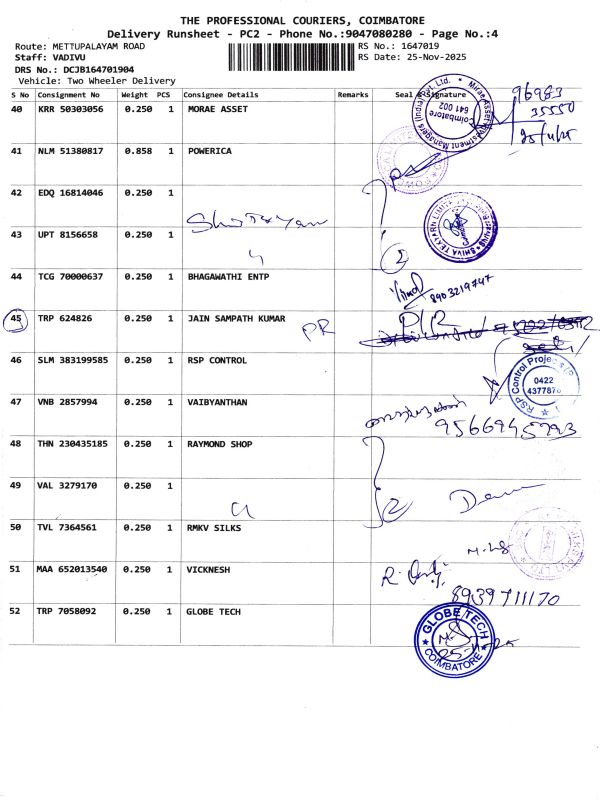 THE PROFESSIONAL COURIERS, COIMBATORE
Delivery Runsheet - PC2 - Phone No.:9047080280 - Page No.:4
Route: METTUPALAYAM ROAD
RS No.: 1647019
Staff: VADIVU
RS Date: 25-Nov-2025
DRS No.: DCJB164701904
Vehicle: Two Wheeler Delivery
S No Consignment No Weight PCS Consignee Details Remarks Seal & Signature
40 KRR 50303056 0.250 1 MORAE ASSET
Mirae Asset Investment Managers (India) Pvt. Ltd. Coimbatore 641 002
96983
35550
25/11/25
41 NLM 51380817 0.858 1 POWERICA
42 EDQ 16814046 0.250 1
43 UPT 8156658 0.250 1
2
44 TCG 70000637 0.250 1 BHAGAWATHI ENTP
8903219747
45 TRP 624826 0.250 1 JAIN SAMPATH KUMAR
PR
P/R
46 SLM 383199585 0.250 1 RSP CONTROL
RSP Control Projects
0422
437787
47 VNB 2857994 0.250 1 VAIBYANTHAN
9566945793
48 THN 230435185 0.250 1 RAYMOND SHOP
49 VAL 3279170 0.250 1
2
50 TVL 7364561 0.250 1 RMKV SILKS
51 MAA 652013540 0.250 1 VICKNESH
8939711170
52 TRP 7058092 0.250 1 GLOBE TECH
GLOBE TECH
COIMBATORE